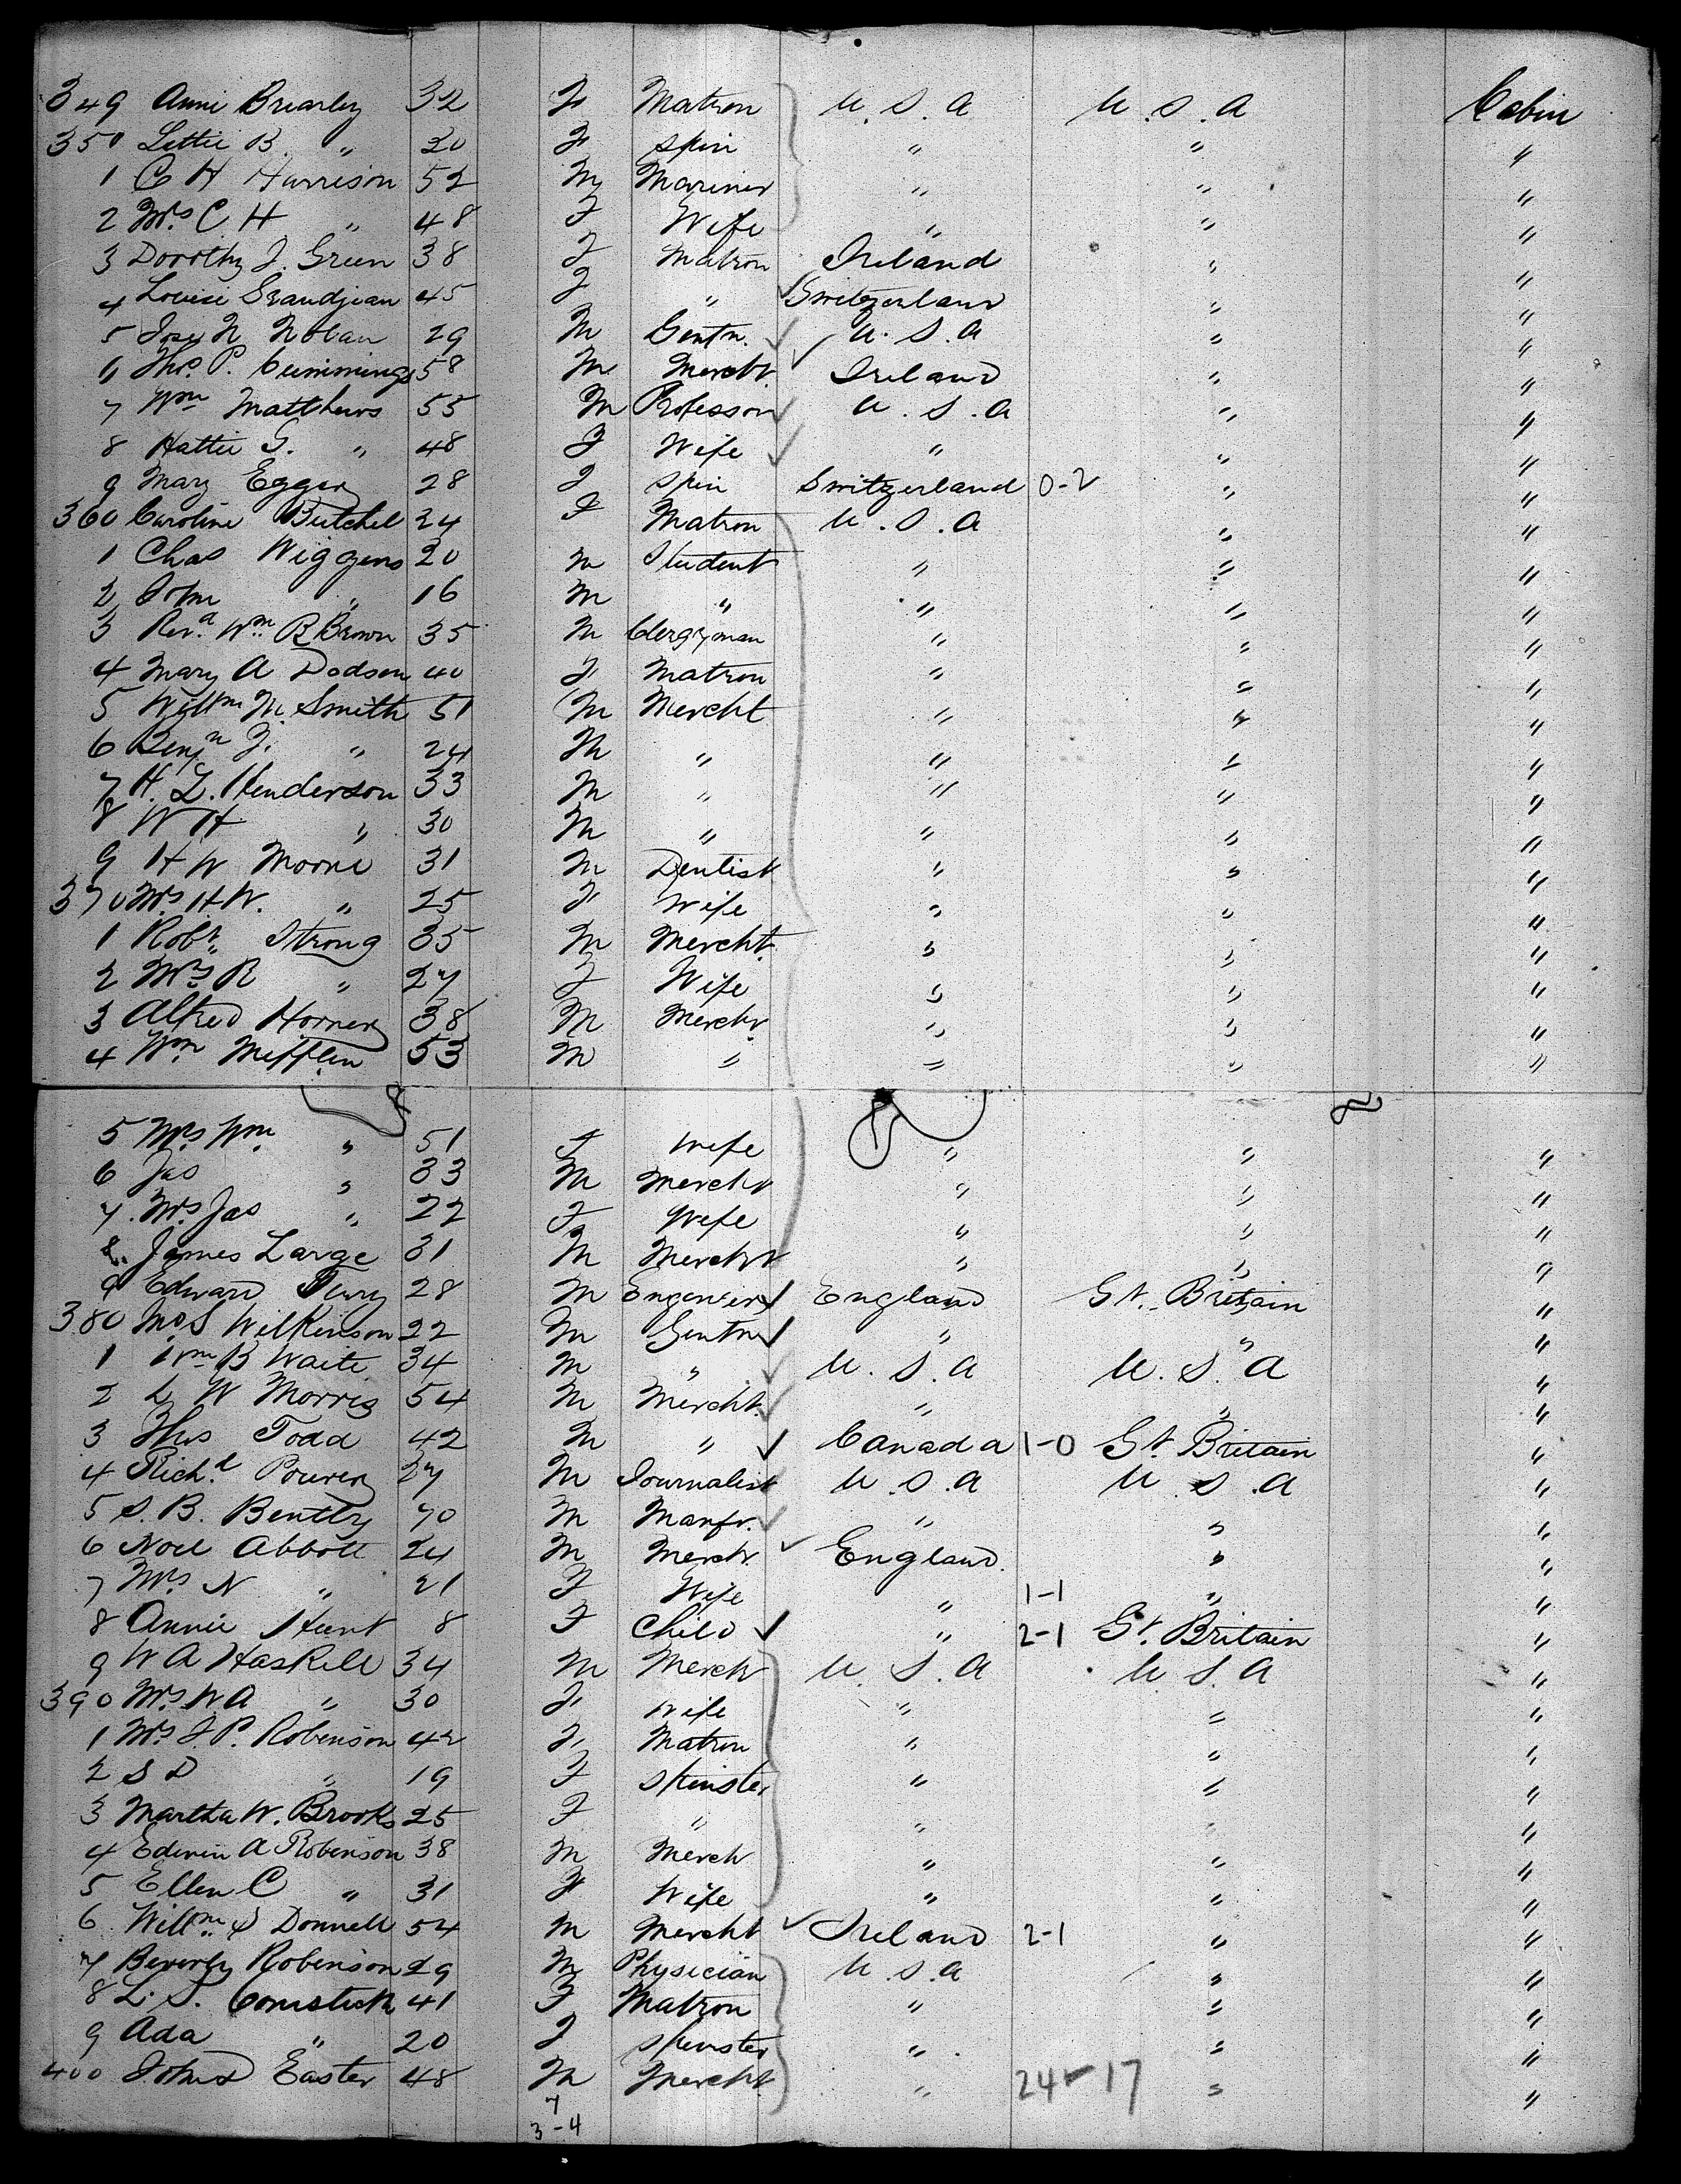 349 Annie Brearley 32 F Matron U.S.A U.S.A Cabin
350 Lettie B. " 20 F Spin " " "
1 C H Harrison 52 M Mariner " " "
2 Mrs C. H " 48 F Wife " " "
3 Dorothy J. Green 38 F Matron Ireland " "
4 Louise Grandjean 45 F " Switzerland " "
5 N Nolan 29 M Gentn. U.S.A " "
6 Thos P. Cummings 58 M Mercht. Ireland " "
7 Wm Matthews 55 M Professor U.S.A " "
8 Hattie G. " 48 F Wife " " "
9 Mary Egger 28 F Spin Switzerland 0-2 " "
360 Caroline Butchel 24 F Matron U.S.A " "
1 Chas Wiggens 20 M Student " " "
2 John " 16 M " " " "
3 Revd. Wm R Brown 35 M Clergyman " " "
4 Mary A Dodson 40 F Matron " " "
5 Willm M. Smith 51 M Mercht " " "
6 Benjn F. " 24 M " " " "
7 H. L. Henderson 33 M " " " "
8 W H " 30 M " " " "
9 H W Moore 31 M Dentist " " "
370 Mrs H W. " 25 F Wife " " "
1 Robt. Strong 35 M Mercht. " " "
2 Mrs R " 27 F Wife " " "
3 Alfred Horner 38 M Mercht " " "
4 Wm Mifflin 53 M " " " "
5 Mrs Wm " 51 F Wife " " "
6 Jas " 33 M Mercht " " "
7. Mrs Jas " 22 F Wife " " "
8. James Large 31 M Mercht " " "
9 Edward 28 M Engenier England Gt. Britain "
380 Wilkinson 22 M Gentn " " "
1 Wm B Waite 34 M " U.S.A U.S.A "
2 L W Morris 54 M Mercht. " " "
3 Thos Todd 42 M " Canada 1-0 Gt. Britain "
4 Richd Power 27 M Journalist U.S.A U.S.A "
5 S. B. Bently 70 M Manfr. " " "
6 Noel Abbott 24 M Mercht England. " "
7 Mrs N " 21 F Wife " 1-1 " "
8 Annie Hunt 8 F Child " 2-1 Gt. Britain "
9 W A Haskell 34 M Mercht U.S.A U.S.A "
390 Mrs W A " 30 F Wife " " "
1 Mrs J. P. Robinson 42 F Matron " " "
2 S D " 19 F Spinster " " "
3 Martha W. Brooks 25 F " " " "
4 Edwin A Robinson 38 M Mercht " " "
5 Ellen C " 31 F Wife " " "
6 Willm Donnell 54 M Mercht Ireland 2-1 " "
7 Beverly Robinson 29 M Physician U.S.A " "
8 L. S. Comstock 41 F Matron " " "
9 Ada " 20 F Spinster " " "
400 John Easter 48 M Mercht " 24-17 " "
7
3-4